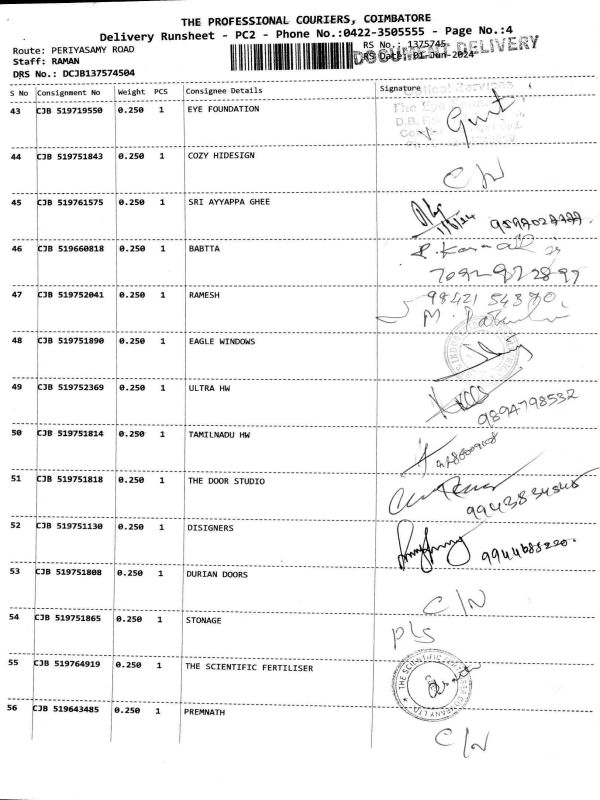 THE PROFESSIONAL COURIERS, COIMBATORE
Delivery Runsheet - PC2 - Phone No.:0422-3505555 - Page No.:4
Route: PERIYASAMY ROAD RS No.: 1375745
DOCUMENT DELIVERY
Staff: RAMAN RS Date: 01-Jun-2024
DRS No.: DCJB137574504
S No Consignment No Weight PCS Consignee Details Signature
43 CJB 519719550 0.250 1 EYE FOUNDATION
The Eye
44 CJB 519751843 0.250 1 COZY HIDESIGN C/N
45 CJB 519761575 0.250 1 SRI AYYAPPA GHEE
1/6/24
46 CJB 519660818 0.250 1 BABTTA
47 CJB 519752041 0.250 1 RAMESH
48 CJB 519751890 0.250 1 EAGLE WINDOWS
49 CJB 519752369 0.250 1 ULTRA HW
9894798532
50 CJB 519751814 0.250 1 TAMILNADU HW
51 CJB 519751818 0.250 1 THE DOOR STUDIO
52 CJB 519751130 0.250 1 DISIGNERS
53 CJB 519751808 0.250 1 DURIAN DOORS C/N
54 CJB 519751865 0.250 1 STONAGE
pls
55 CJB 519764919 0.250 1 THE SCIENTIFIC FERTILISER
56 CJB 519643485 0.250 1 PREMNATH
C/N